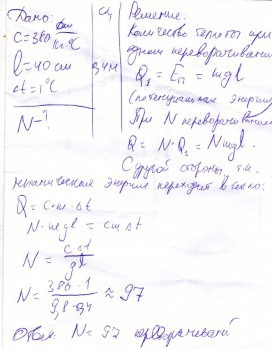 Дано:
C=380 Дж/кг·°С
l=40 см
Δt=1°С
N-?
СИ
0,4м
Решение:
Количество теплоты при
одном переворачивании
Q₁ = Eп = mgl
(потенциальная энергия)
При N переворачиваниях
Q = N·Q₁ = Nmgl.
С другой стороны, т.к.
механическая энергия переходит в тепло:
Q = c·m·Δt
N·mgl = cmΔt
N = cΔt/gl
N = 380·1/9,8·0,4 ≈ 97
Ответ: N = 97 переворачиваний